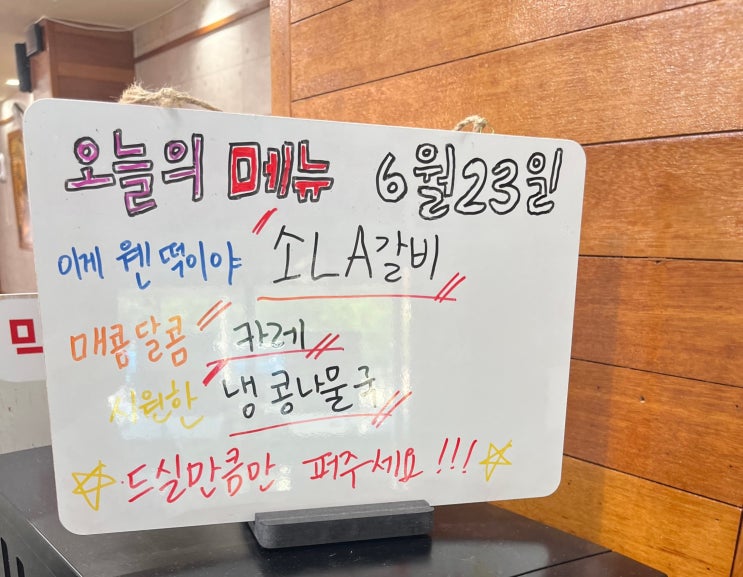 오늘의 메뉴 6월23일
이게 웬 떡이야 "소LA갈비"
매콤달콤 "카레"
시원한 "냉콩나물국"
☆드실만큼만 퍼주세요!!!☆